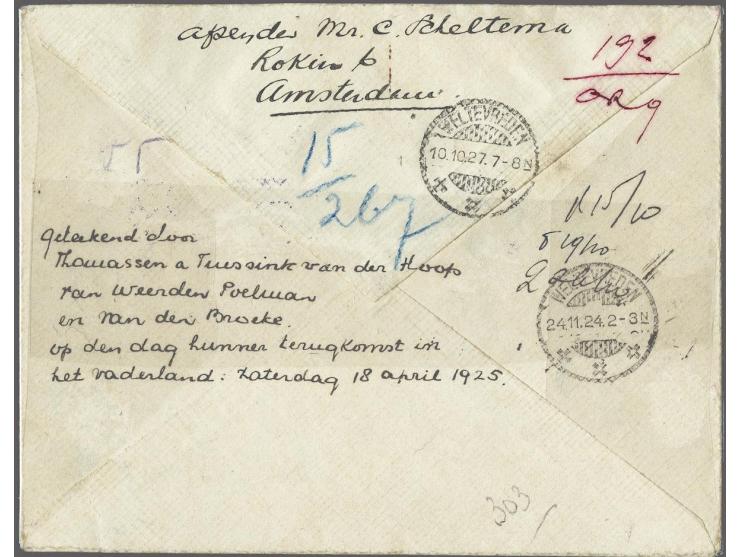 afzender Mr. C. Scheltema
Rokin 6
Amsterdam.
192
org
15
267
WELTEVREDEN
10.10.27.7-8N
55
1 15/10
8 19/10
2
WELTEVREDEN
24.11.24.2-3N
geteekend door
Thomassen a Thuessink van der Hoop
van Weerden Poelman
en van den Broeke.
op den dag hunner terugkomst in
het vaderland: Zaterdag 18 april 1925.
303